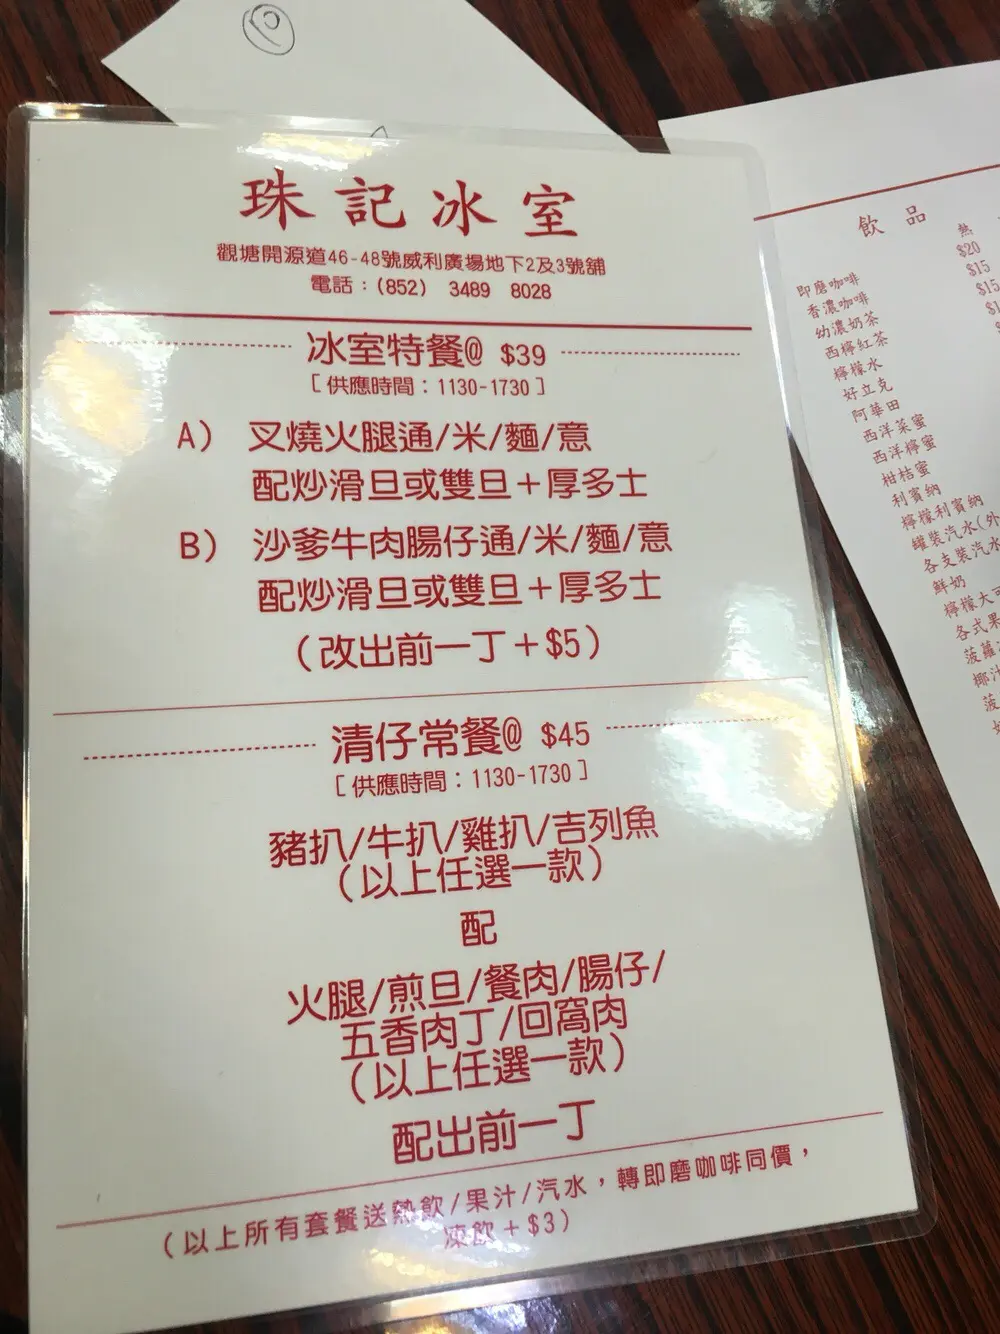 珠記冰室
觀塘開源道46-48號威利廣場地下2及3號舖
電話：(852) 3489 8028
冰室特餐@ $39
[供應時間：1130-1730]
A) 叉燒火腿通/米/麵/意
配炒滑旦或雙旦＋厚多士
B) 沙爹牛肉腸仔通/米/麵/意
配炒滑旦或雙旦＋厚多士
(改出前一丁＋$5)
清仔常餐@ $45
[供應時間：1130-1730]
豬扒/牛扒/雞扒/吉列魚
(以上任選一款)
配
火腿/煎旦/餐肉/腸仔/
五香肉丁/回窩肉
(以上任選一款)
配出前一丁
(以上所有套餐送熱飲/果汁/汽水，轉即磨咖啡同價，
凍飲＋$3)
飲品
熱
即磨咖啡 $20
香濃咖啡 $15
幼濃奶茶 $15
西檸紅茶
檸檬水
好立克
阿華田
西洋菜蜜
西洋檸蜜
柑桔蜜
利賓納
檸檬利賓納
罐裝汽水(外
各支裝汽水
鮮奶
檸檬大
各式果
菠蘿
椰汁
菠